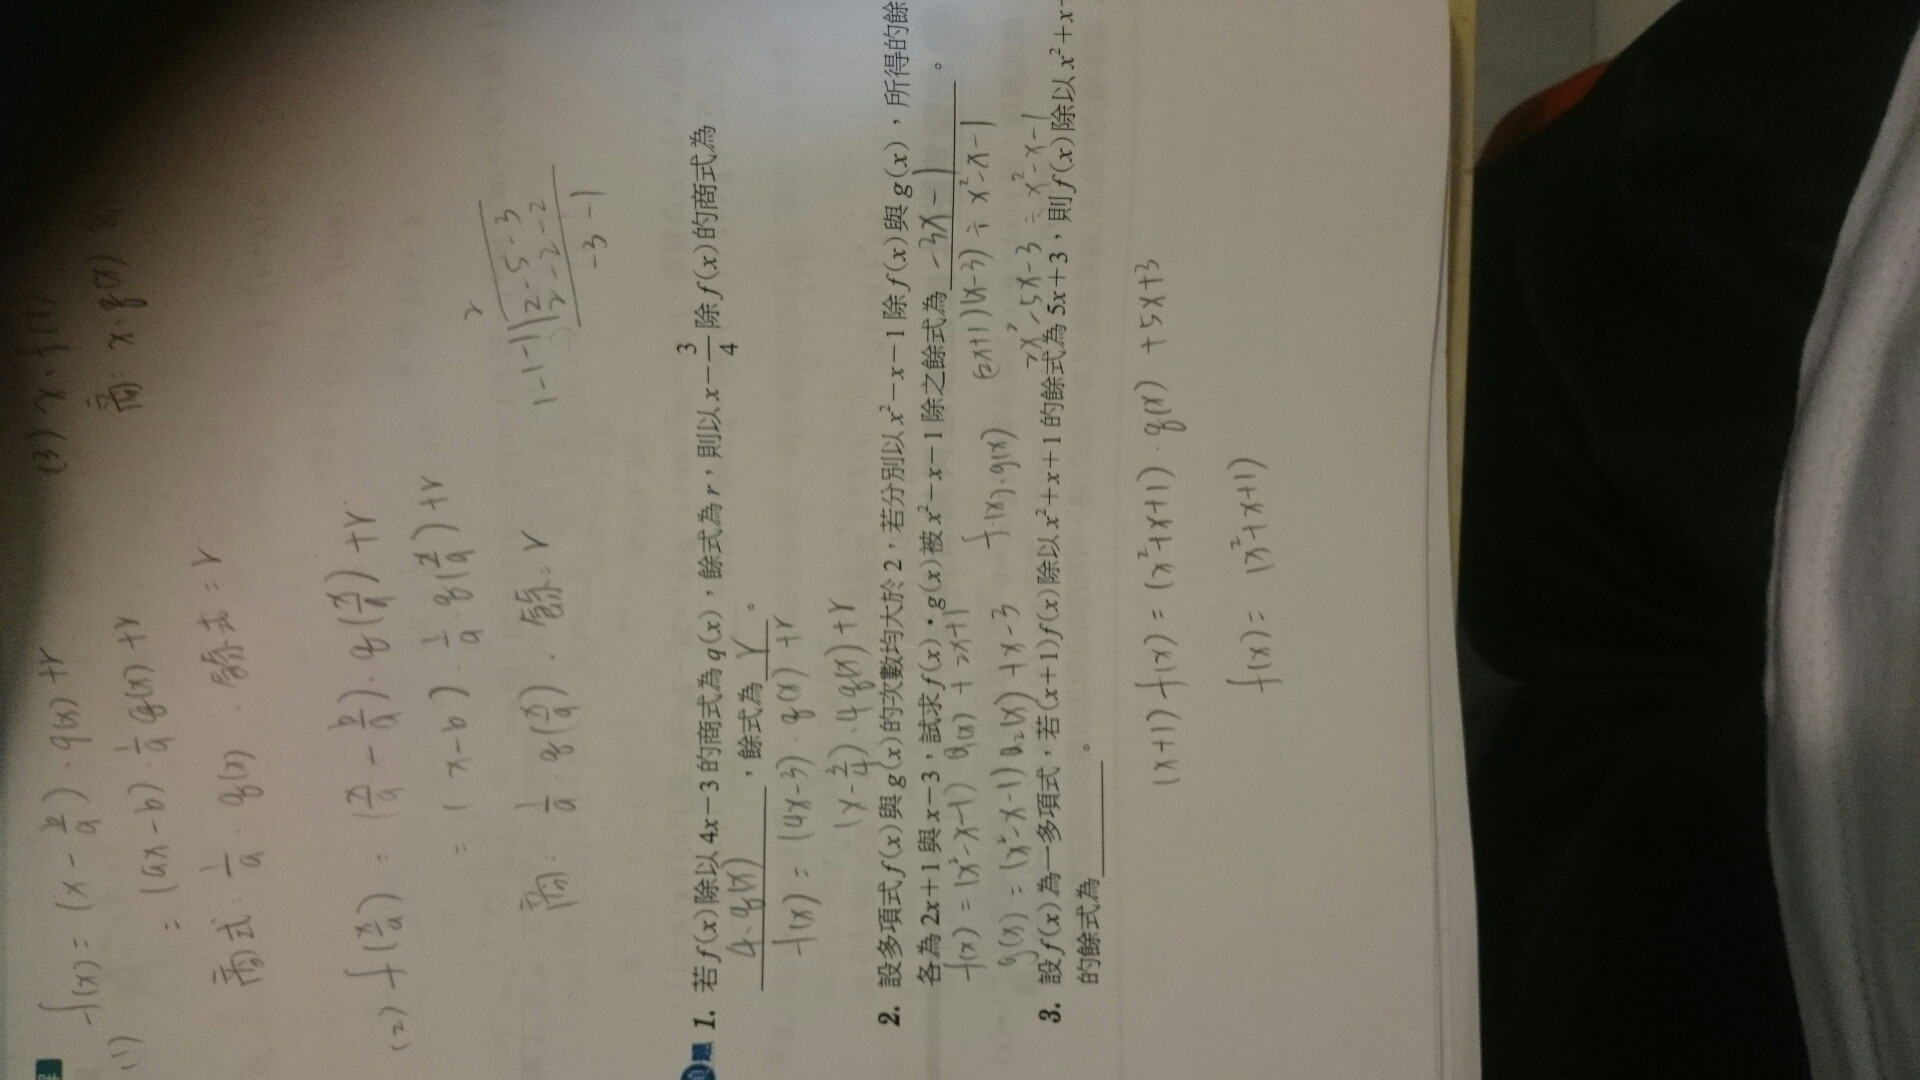 (1) f(x) = (x - b/a)·q(x) + r
= (ax - b)·1/a q(x) + r
商式: 1/a q(x) . 餘式 = r
(2) f(x/a) = (x/a - b/a)·q(x/a) + r
= (x - b)·1/a·q(x/a) + r
商: 1/a q(x/a) . 餘 = r
(3) x·f(x)
商: x·q(x)
2
1-1-1 2-5-3
2-2-2
-3-1
1. 若 f(x) 除以 4x－3 的商式為 q(x)，餘式為 r，則以 x－3/4 除 f(x) 的商式為
4·q(x)，餘式為 r。
f(x) = (4x-3)·q(x) + r
(x-3/4)·4q(x) + r
2. 設多項式 f(x) 與 g(x) 的次數均大於 2，若分別以 x²－x－1 除 f(x) 與 g(x)，所得的餘
各為 2x＋1 與 x－3，試求 f(x)·g(x) 被 x²－x－1 除之餘式為 -3x-1。
f(x) = (x²-x-1) Q(x) + 2x+1 f(x)·g(x) (2x+1)(x-3) ÷ x²-x-1
g(x) = (x²-x-1) Q₂(x) + x-3 2x²-5x-3 ÷ x²-x-1
3. 設 f(x) 為一多項式，若 (x＋1)f(x) 除以 x²＋x＋1 的餘式為 5x＋3，則 f(x) 除以 x²＋x
的餘式為 。
(x+1) f(x) = (x²+x+1)·q(x) + 5x+3
f(x) = (x²+x+1)